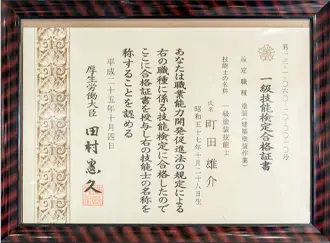 一級技能検定合格証書
検定職種 塗装(建築塗装作業)
技能士の名称 一級塗装技能士
氏名 町田雄介
昭和五十七年十月二十八日生
あなたは職業能力開発促進法の規定による
右の職種に係る技能検定に合格したので
ここに合格証書を授与し右の技能士の名称を
称することを認める
平成二十五年十月四日
厚生労働大臣 田村憲久